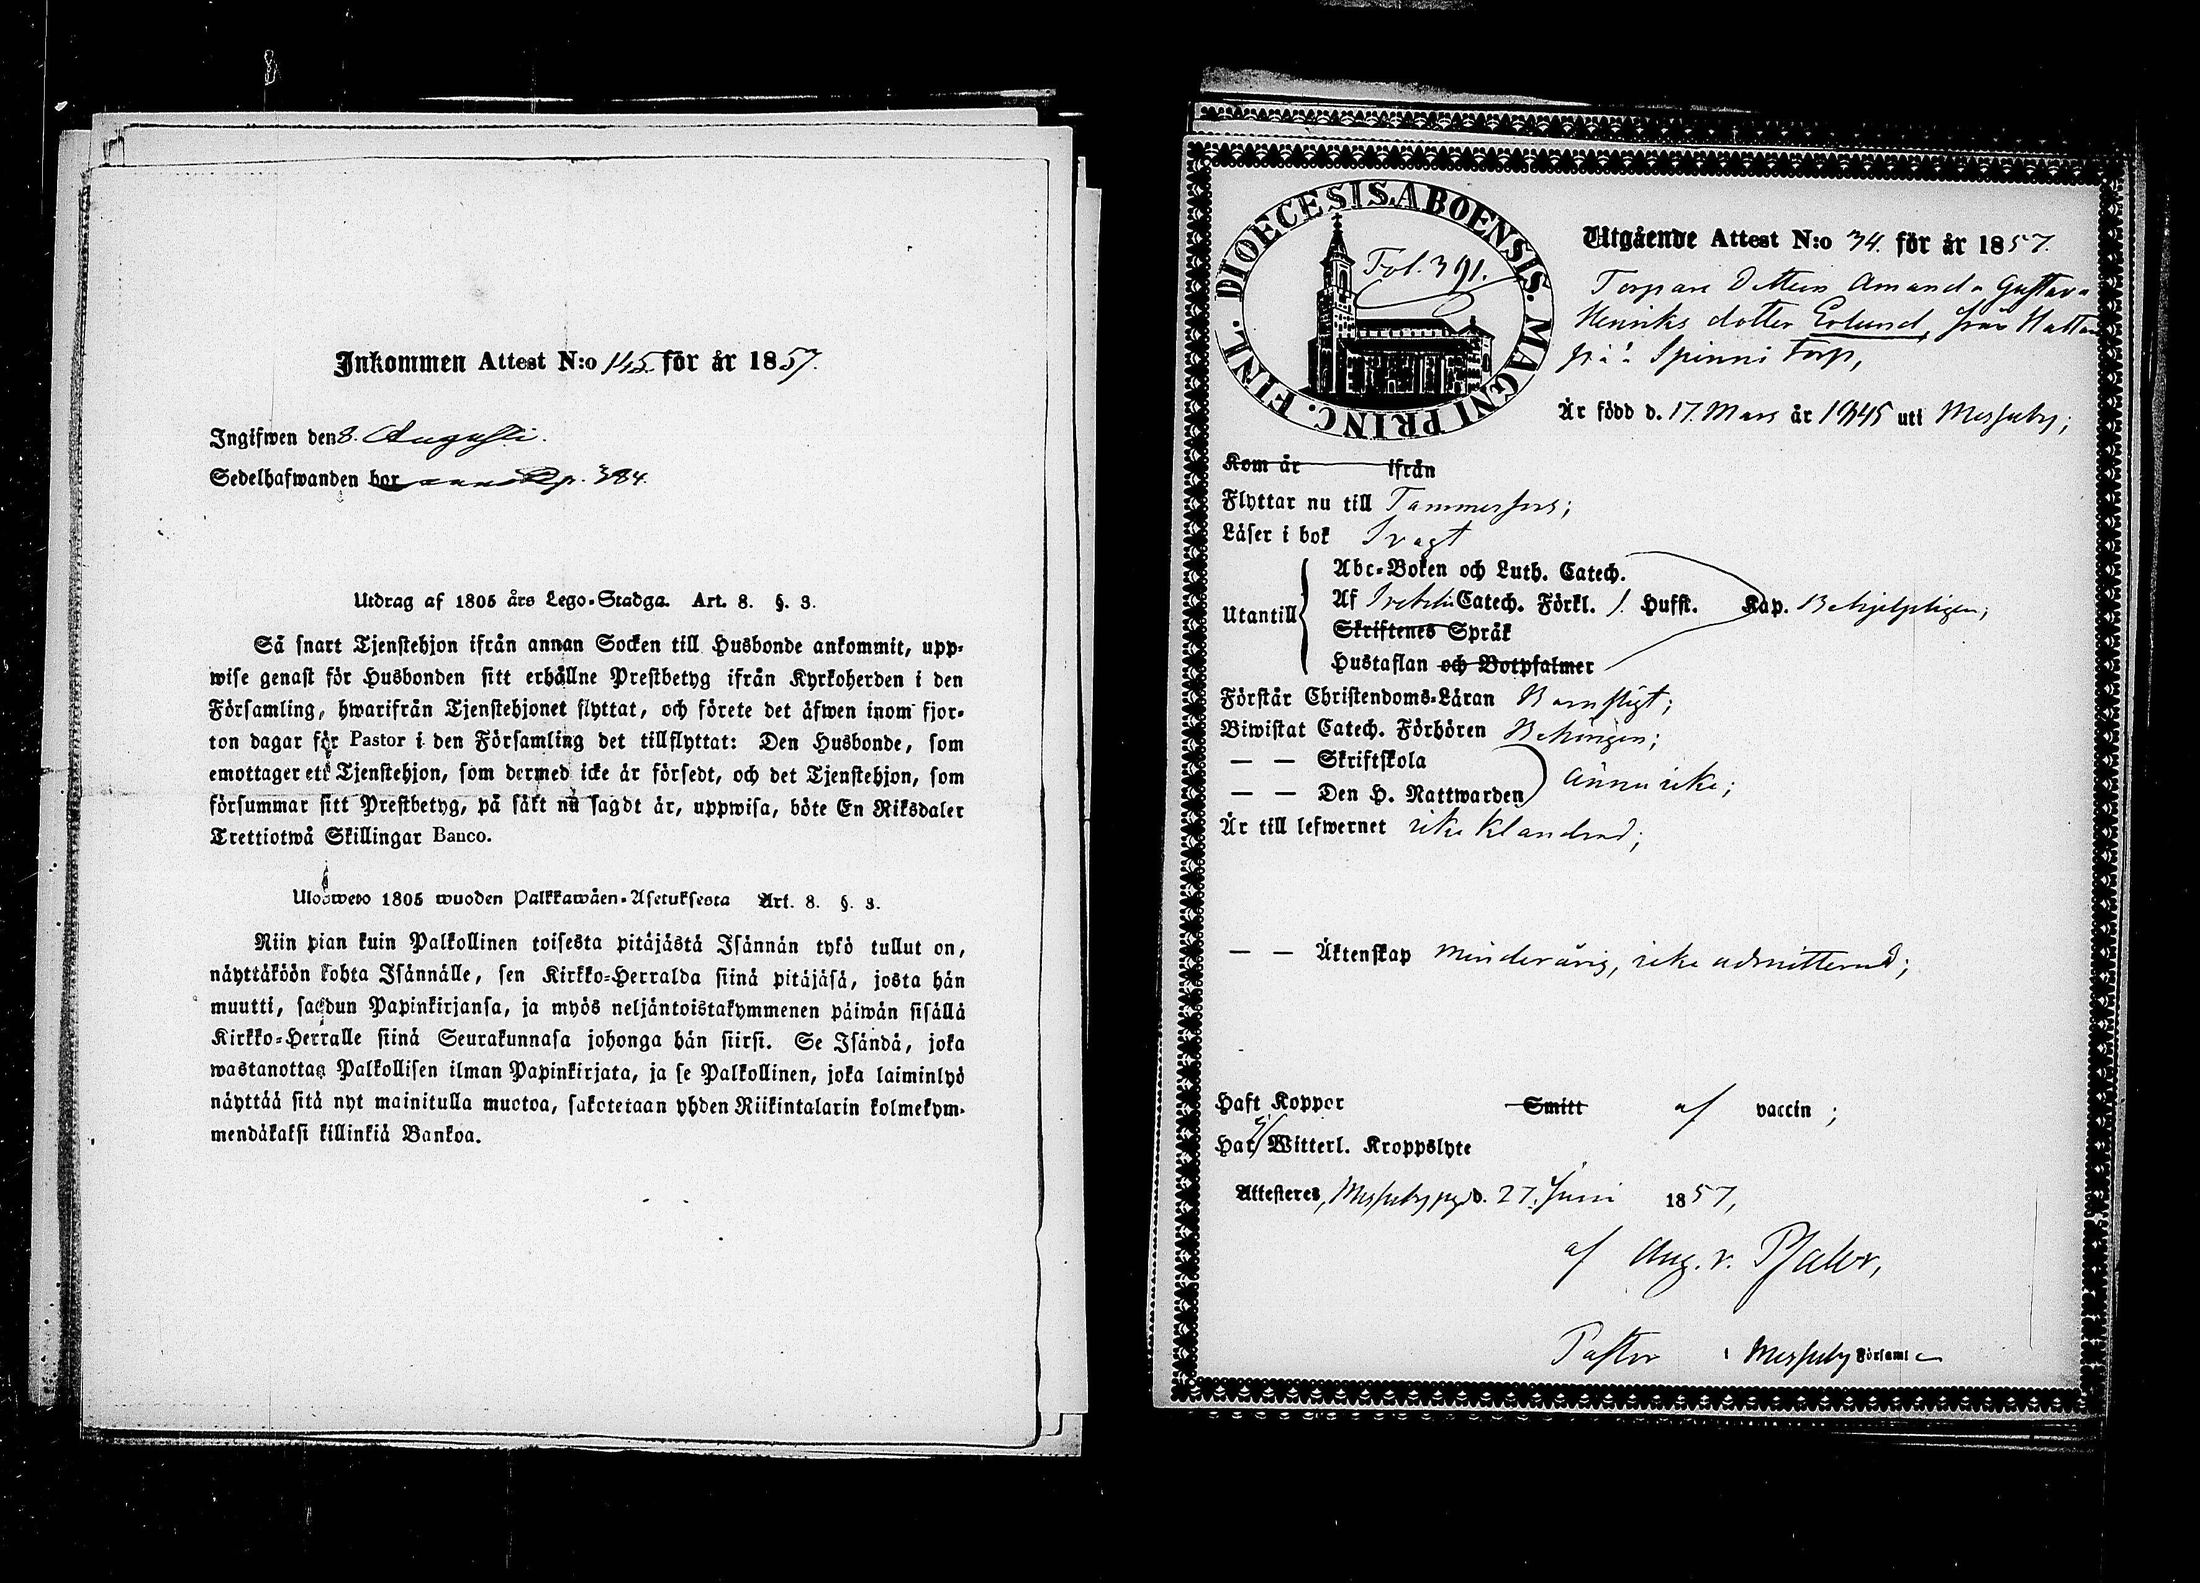 Inkommen Attest N:o 145. för år 1857.
Ingifwen den 8. Augusti.
Sedelhafwanden bor p. 384.
Utdrag af 1805 års Lego-Stadga. Art. 8. §. 3.
Så snart Tjenstehjon ifrån annan Socken till Husbonde ankommit, upp-
wise genast för Husbonden sitt erhållne Prestbetyg ifrån Kyrkoherden i den
Församling, hwarifrån Tjenstehjonet flyttat, och förete det äfwen inom fjor-
ton dagar för Pastor i den Församling det tillflyttat: Den Husbonde, som
emottager ett Tjenstehjon, som dermed icke är försedt, och det Tjenstehjon, som
försummar sitt Prestbetyg, på sätt nu sagdt är, uppwisa, böte En Riksdaler
Trettiotwå Skillingar Banco.
Ulosweto 1805 wuoden Palkkawäen-Asetuksesta Art. 8. §. 3.
Niin pian kuin Palkollinen toisesta pitäjästä Isännän tykö tullut on,
näyttäköön kohta Isännälle, sen Kirkko-Herralda siinä pitäjäsä, josta hän
muutti, saadun Papinkirjansa, ja myös neljäntoistakymmenen päiwän sisällä
Kirkko-Herralle siinä Seurakunnasa johonga hän siirsi. Se Isändä, joka
wastanottaa Palkollisen ilman Papinkirjata, ja se Palkollinen, joka laiminlyö
näyttää sitä nyt mainitulla muotoa, sakotetaan yhden Riikintalarin kolmekym-
mendäkaksi killinkiä Bankoa.
DIOECESIS. ABOENSIS. MAGNI PRINC. FINL.
Fol. 391.
Utgående Attest N:o 34. för år 1857.
Torpare Dottern Amanda Gustava
Henriks dotter Erlund, från
Spinni Torp,
Är född d. 17. Mars år 1845 uti Messuby;
Kom år ifrån
Flyttar nu till Tammerfors;
Läser i bok Svagt
Abc-Boken och Luth. Catech.
Utantill Af Catech. Förkl. 1. Hufst. Kap. Behjelpligen;
Skriftenes Språk
Hustaflan och Botpsalmer
Förstår Christendoms-Läran Barnsligt;
Biwistat Catech. Förhören Behörigen;
— — Skriftskola
— — Den H. Nattwarden ännu icke;
Är till lefwernet icke klandrad;
— — Äktenskap minderårig, icke admitterad;
Haft Koppor Smitt af vaccin ;
Har ej Witterl. Kroppslyte
Attesteres, Messuby pgd d. 27. Juni 1857,
af Aug. v. Pfaler,
Pastor i Messuby Församl